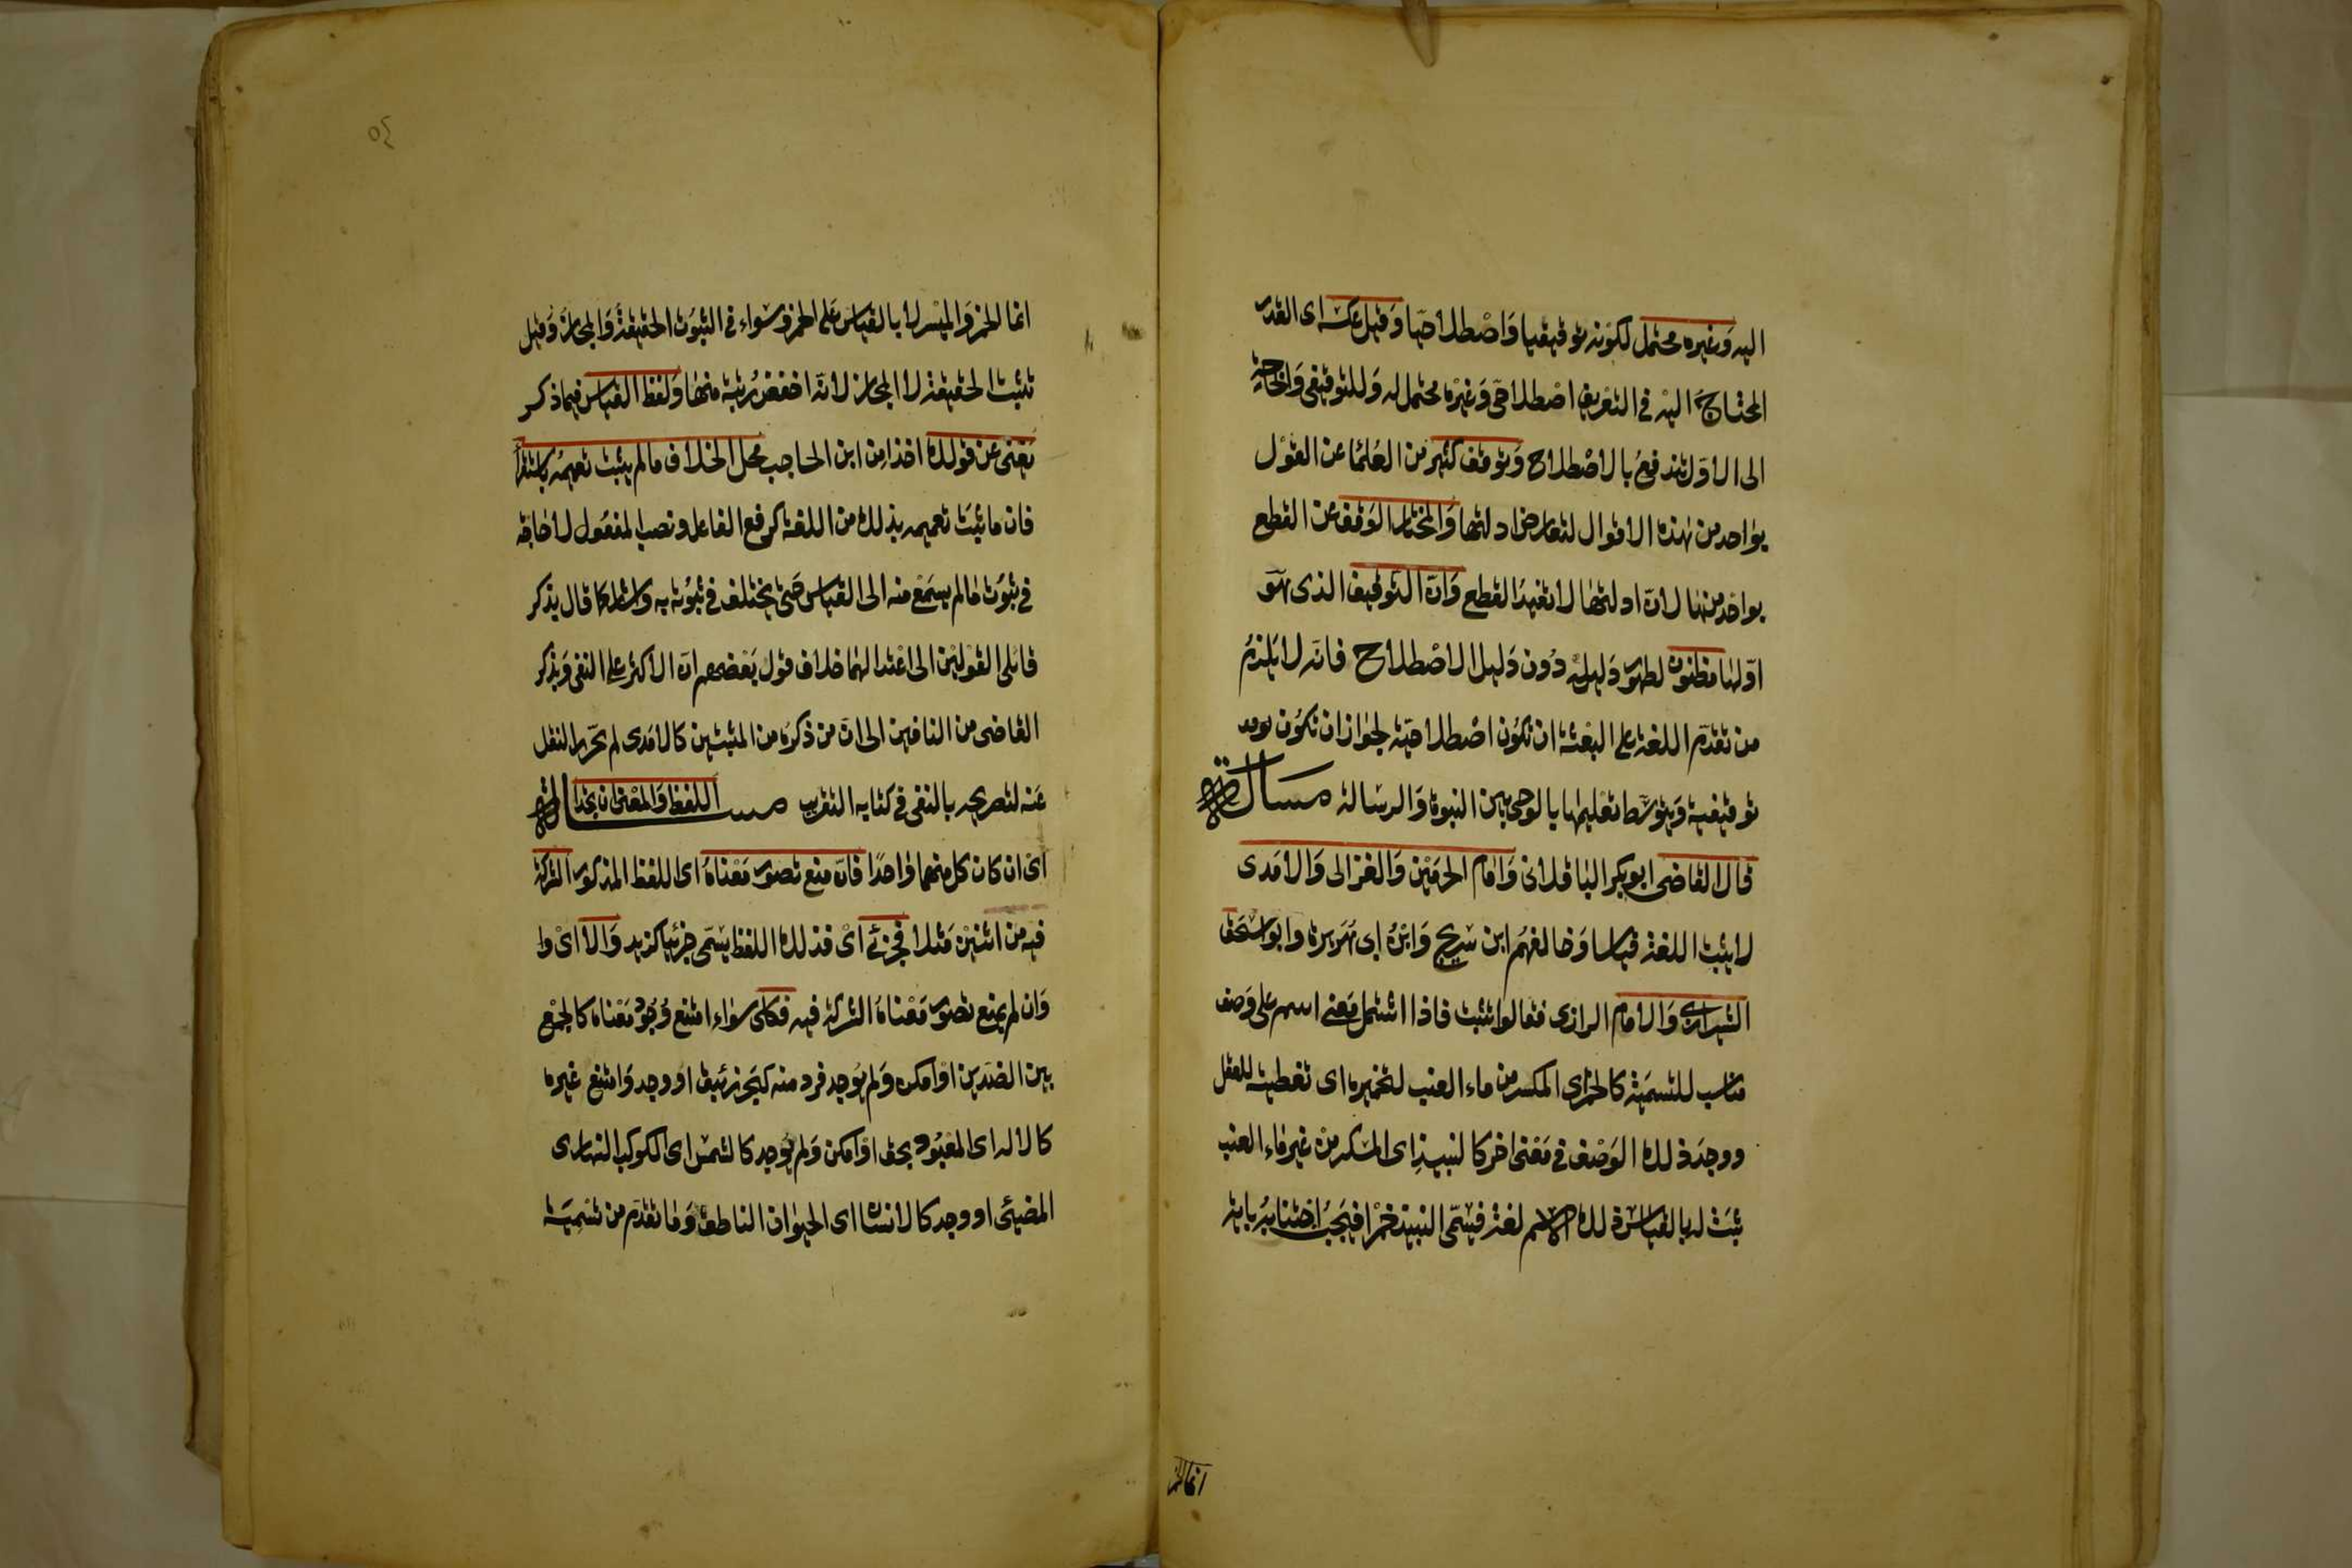 اليه وغيره محتمل لكونه توقيفيا واصطلاحيا وقيل عكسه اى القدر
المحتاج اليه في التعريف اصطلاحى وغيره محتمل له وللتوقيفى والحاجة
الى الاول تندفع بالاصطلاح وتوقف كثير من العلما عن القول
بواحد من هذه الاقوال لتعارض ادلتها والمختار الوقف عن القطع
بواحد منها لان ادلتها لا تفيد القطع وان التوقيف الذى هو
اولها مظنون لظهور دليله دون دليل الاصطلاح فانه لا يلزم
من تقدم اللغة على البعثة ان تكون اصطلاحية لجواز ان تكون
توقيفية ويتوسط تعليمها بالوحى بين النبوة والرسالة مسالة
قال القاضى ابو بكر الباقلانى وامام الحرمين والغزالى والامدى
لا يثبت اللغة قياسا وخالفهم ابن سريج وابن ابى هريرة وابو اسحق
الشيرازى والامام الرازى فقالوا تثبت فاذا اشتمل معنى اسم على وصف
مناسب للتسمية كالخمر اى المسكر من ماء العنب لتخميره اى تغطيته للعقل
ووجد ذلك الوصف في معنى اخر كالنبيذ اى المسكر من غير ماء العنب
ثبت له بالقياس ذلك الاسم لغة فيسمى النبيذ خمرا فيجب اجتنابه باية
انما الخمر
انما الخمر والميسر لا بالقياس على الخمر وسواء في الثبوت الحقيقة والمجاز وقيل
تثبت الحقيقة لا المجاز لانه اخفض رتبة منها ولفظ القياس فيما ذكر
يغنى عن قولك اخذا من ابن الحاجب محل الخلاف ما لم يثبت تعميمه باستقرا
فان ما ثبت تعميمه بذلك من اللغة كرفع الفاعل ونصب المفعول لا حاجة
في ثبوت ما لم يسمع منه الى القياس حتى يختلف في ثبوته به واشار كما قال بذكر
قائلى القولين الى اعتدالهما خلاف قول بعضهم ان الاكثر على النفى وبذكر
القاضى من النافين الى ان من ذكره من المثبتين كالامدى لم يحرر النقل
عنه لتصريحه بالنفى في كتابه التقريب مسالة اللفظ والمعنى ان اتحدا
اى ان كان كل منهما واحدا فان منع تصور معناه اى اللفظ المذكور الشركة
فيه من اثنين مثلا فجزئى اى فذلك اللفظ يسمى جزئيا كزيد والا اى وا
وان لم يمنع تصور معناه الشركة فيه فكلى سواء امتنع وجود معناه كالجمع
بين الضدين او امكن ولم يوجد فرد منه كبحر زئبق او وجد وامتنع غيره
كالاله اى المعبود بحق او امكن ولم يوجد كالشمس اى الكوكب النهارى
المضيئى او وجد كالانسان اى الحيوان الناطق وما تقدم من تسمية